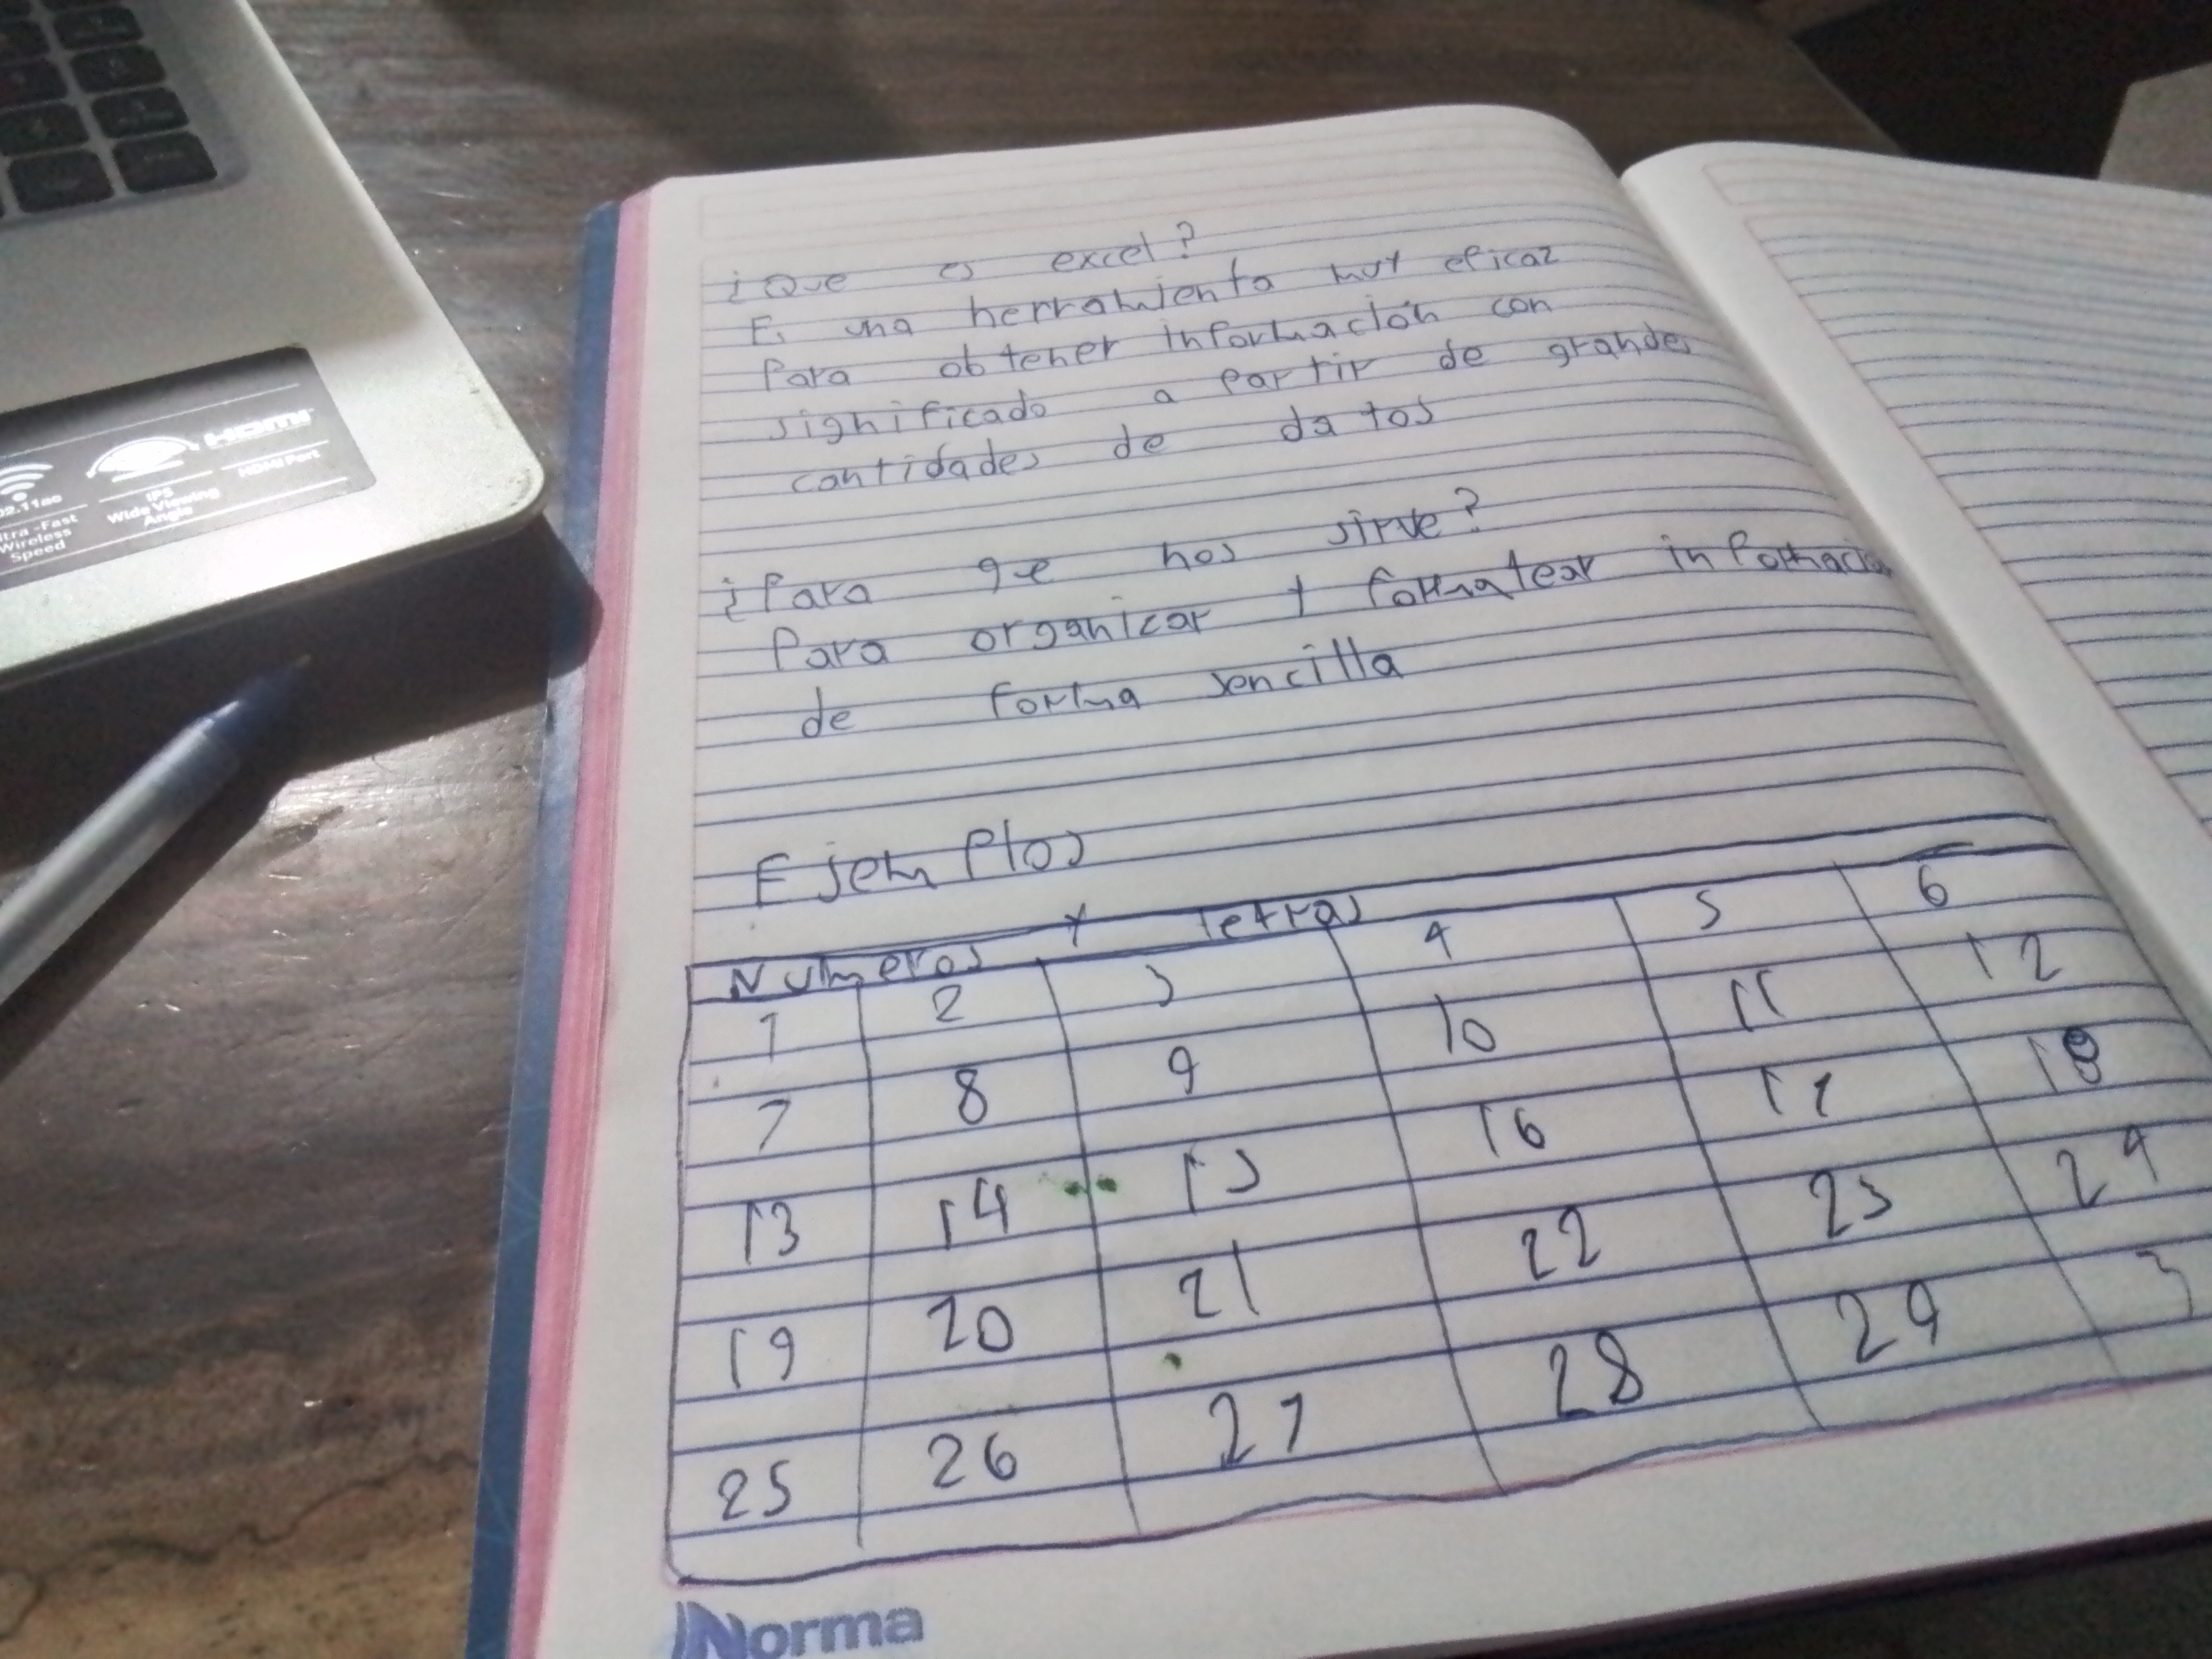 ¿Que es excel?
Es una herramienta muy eficaz
Para obtener información con
significado a partir de grandes
cantidades de datos
¿Para qe nos sirve?
Para organizar y formatear información
de forma sencilla
Ejemplos
Numeros y letras
1 2 3 4 5 6
7 8 9 10 11 12
13 14 15 16 17 18
19 20 21 22 23 24
25 26 27 28 29
Norma
HDMI
IPS
Wide Viewing
Angle
HDMI Port
Wireless
Speed